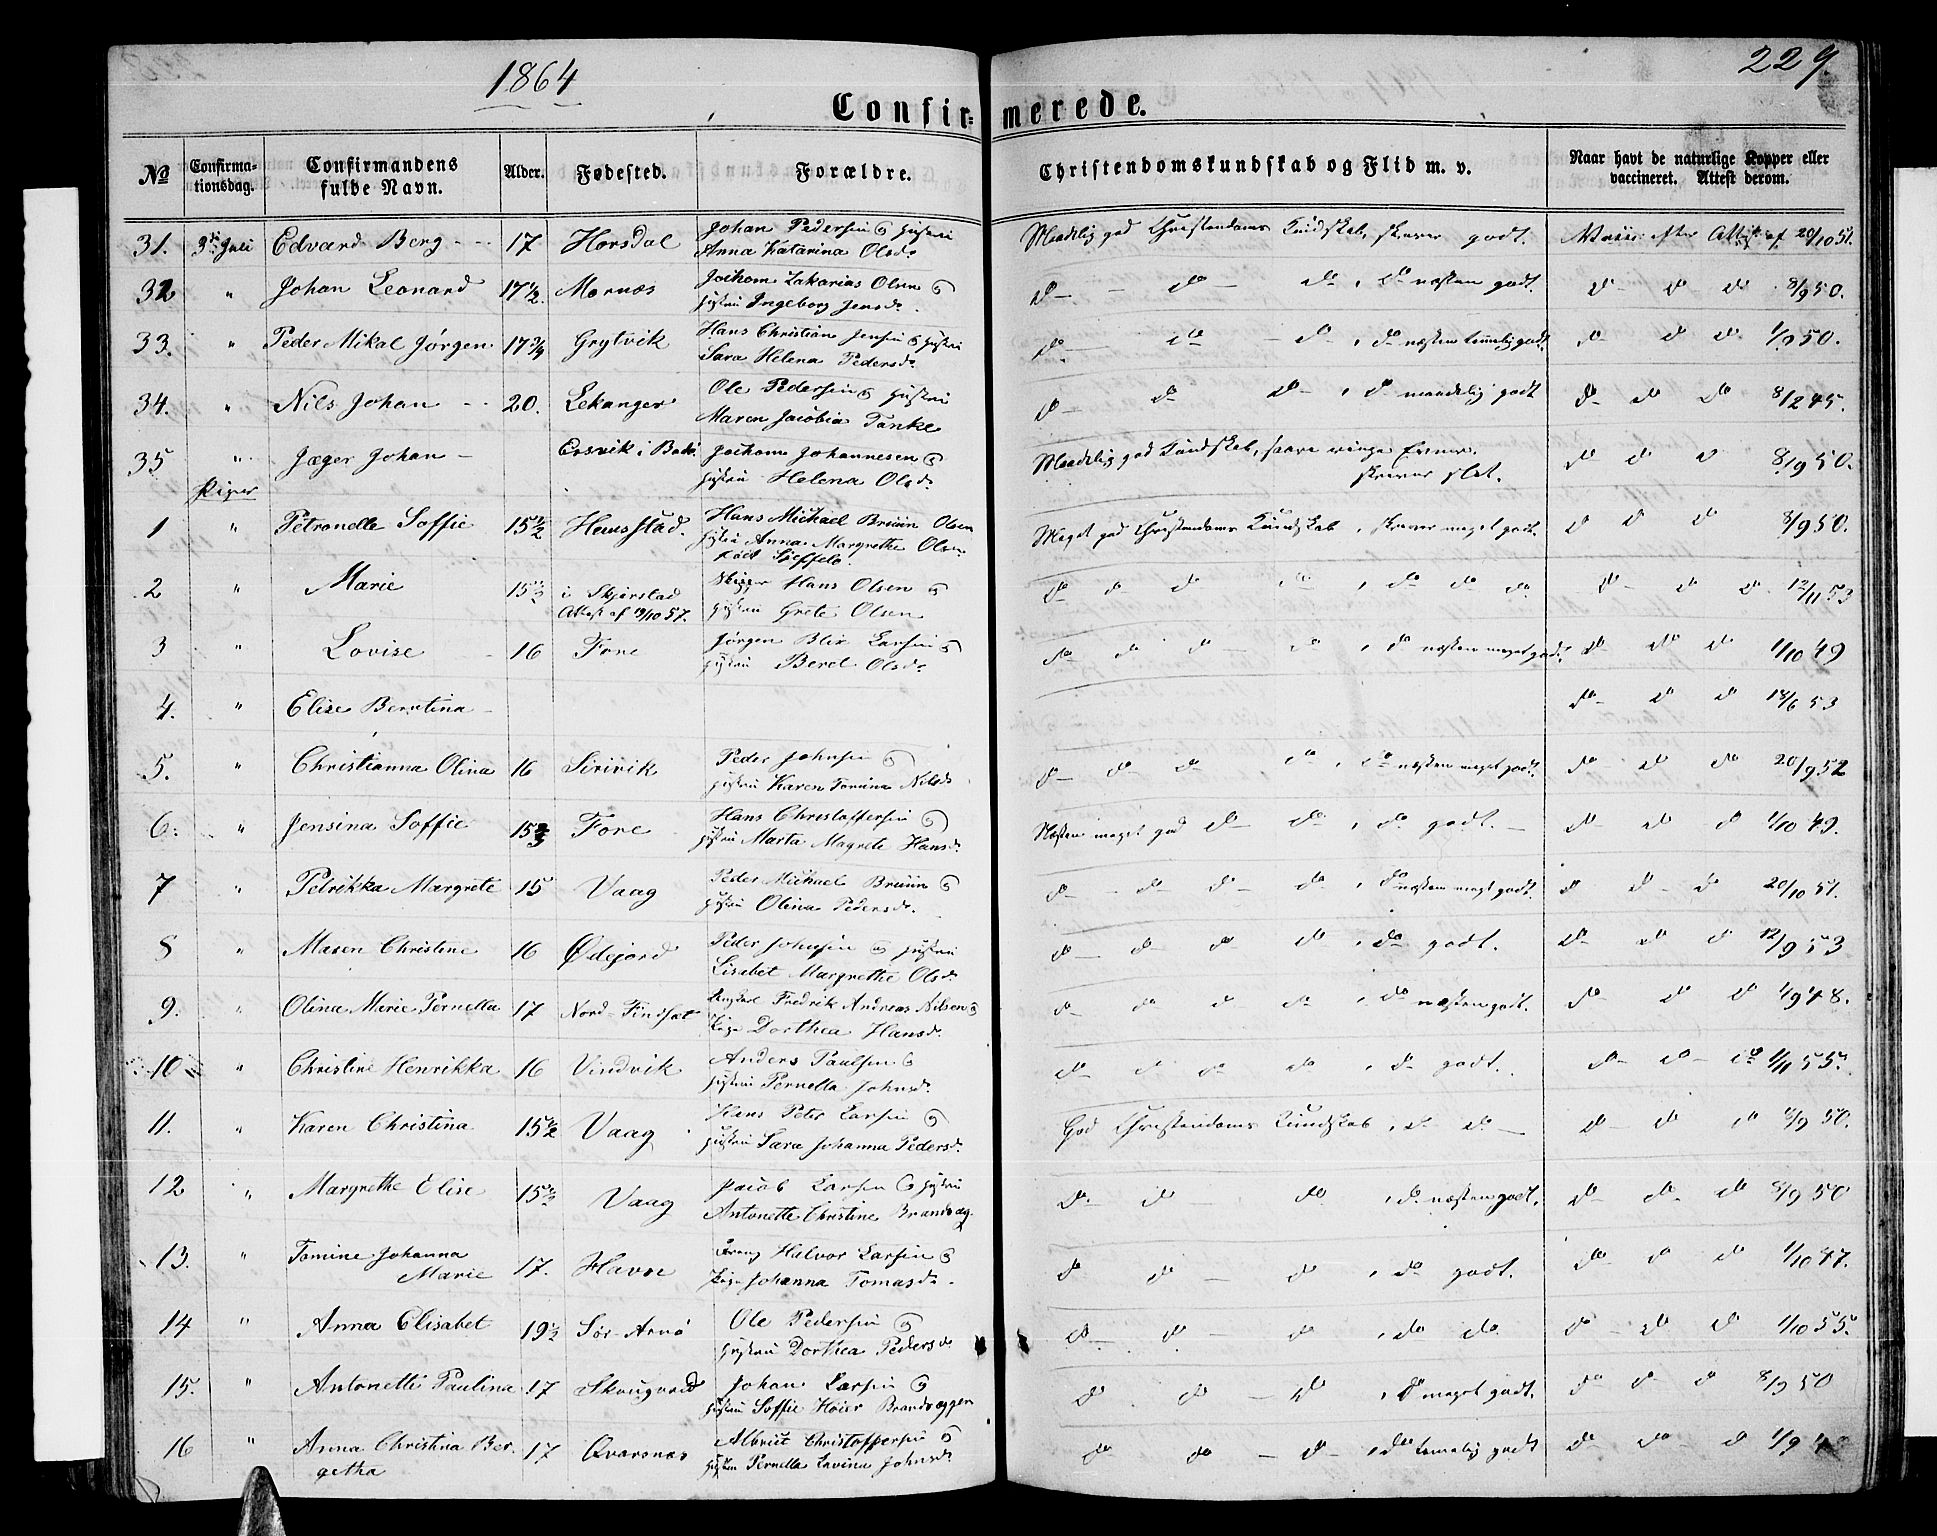 1864
229.
Confir= merede.
No Confirma- Confirmandens Alder. Fødested. Forældre. Christendomskundskab og Flid m. v. Naar havt de naturlige Kopper eller
tionsdag. fulde Navn. vaccineret. Attest derom.
31. 3die Juli Edvard Berg 17 Horsdal Johan Pedersen & Hustru Maadelig god Christendoms Kundskab, skriver godt. efter Attest af 20/10 51.
Anna Katarina Olsdr
32 " Johan Leonard 17 1/2 Mornæs Jochom Zakarias Olsen & do do do, do næsten godt. do do do 8/9 50.
Hustru Ingeborg Jensdr
33. " Peder Mikal Jørgen 17 3/4 Grytvik Hans Christian Jensen & Hustru do do do, do næsten temmelig godt. do do do 1/9 50.
Sara Helena Pedersdr
34. " Nils Johan 20. Lekanger Ole Pedersen & Hustru do do do, do maadelig godt do do do 8/2 45.
Maren Jacobia Tanke
35 " Jæger Johan Ersvik i Bodø Jochom Johannesen & Maadelig god Kundskab, svare ringe Evner. do do do 8/9 50.
Hustru Helena Olsdr skriver slet.
Piger
1 " Petronelle Soffie 15 1/2 Hennsstad. Hans Michael Bruun Olsen Meget god Christendoms Kundskab, skriver meget godt. do do do 8/9 50.
Hustru Anna Margrethe Olsen
født
2 " Marie 15 i Skjerstad Hans Olsen & do do do do, do do do do do do 12/11 53
Attest af 19/10 57. Hustru Grete Olsen
3 " Lovise 16 Fore Jørgen Blix Larsen & do do do do, do næsten meget godt. do do do 1/10 49
Hustru Berel Olsdr
4. " Elise Berntina do do do 18/6 53
5. " Christianna Olina 16 Sirivik Peder Johnsen & do do do do, do næsten meget godt. do do do 20/9 52
Hustru Karen Nilsdr
6. " Jensina Soffie 15 2/3 Fore Hans Christoffersen & Næsten meget god do do, do godt. do do do 1/10 49.
Hustru Marta Magrete Hansdr
7 " Petrikka Margrete 15 Vaag Peder Michael Bruun & do do do do, do næsten meget godt. do do do 20/10 51.
Hustru Olina Pedersdr
8 " Maren Christine 16 Ødejord Peder Johnsen & Hustru do do do do, do godt. do do do 12/9 53
Lisabet Margrethe Olsdr
9. " Olina Marie Pernella 17 Nord-Findset Ungkarl Fredrik Andreas Nilsen & do do do do, do næsten godt. do do do 1/9 48.
Pige Dorthea Hansdr.
10 " Christine Henrikka 16 Vindvik Anders Paulsen & do do do do, do godt. do do do 1/11 55.
Hustru Pernella Johnsdr
11. " Karen Christina 15 1/2 Vaag Hans Peter Larsen & God Christendoms Kundskab, do do do do do 8/9 50.
Hustru Sara Johanna Pedersdr.
12 " Margrethe Elise 15 Vaag Jacob Larsen & Hustru do do do, do næsten godt. do do do 8/9 50
Antonette Christine Brandvæg
13. " Tomine Johanna 17. Havn Halvor Larsen & do do do, do godt. do do do 1/10 47.
Marie Pige Johanna Tomasdr
14 " Anna Elisabet 19 1/2 Sør-Arnø Ole Pedersen & do do do, do do do do do 1/10 55.
Hustru Dorthea Pedersdr
15. " Antonette Paulina 17 Skougvold Johan Larsen & do do do, do meget godt. do do do 8/9 50
Hustru Soffie Høier Brandvæggen
16 " Anna Christina Ber- 17 Qvarsnæs Albrigt Christoffersen & do do do, do temmelig godt do do do 1/9
getha Hustru Pernella Lavina Johnsdr